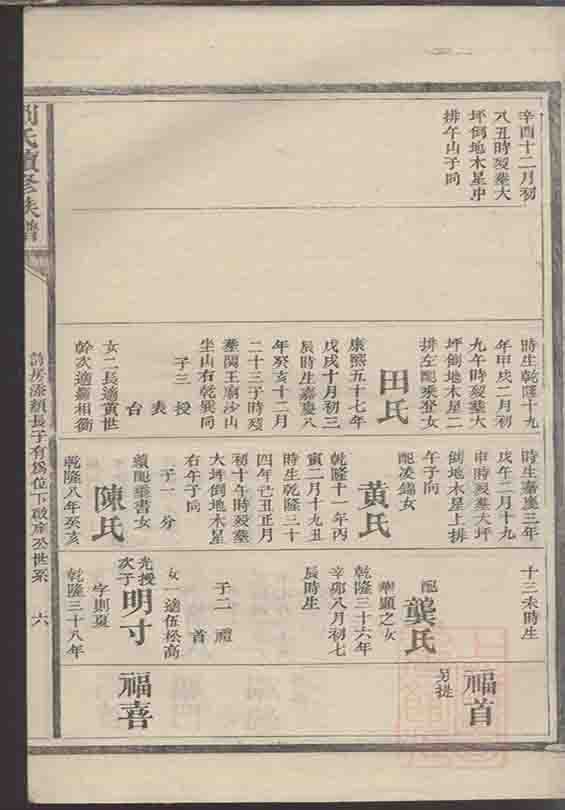 辛酉十二月初
八丑時歿塟大
坪倒地木星中
排午山子向
時生乾隆十九
年甲戌二月初
九午時歿塟大
坪倒地木星二
排左配乘登女
田氏
康熙五十七年
戊戌十月初三
辰時生嘉慶八
年癸亥十二月
二十三子時歿
塟関王廟沙山
坐山右乾巽向
子三 授
表
台
女二長適黃世
幹次適羅相衡
時生嘉慶三年
戊午二月十九
申時歿塟大坪
倒地木星上排
午子向
配凌錦女
黃氏
乾隆十一年丙
寅二月十九丑
時生乾隆三十
四年己丑正月
初十午時歿塟
大坪倒地木星
右午子向
子一 分
續配乘書女
陳氏
乾隆八年癸亥
十三未時生
配
龔氏
華顯之女
乾隆三十六年
辛卯八月初七
辰時生
子二 禮
首
女一適伍松高
光授
次子
明寸
字則夏
乾隆三十八年
福首
另提
福喜
劉氏續修族譜
長子有為位下啟序丞世系 六